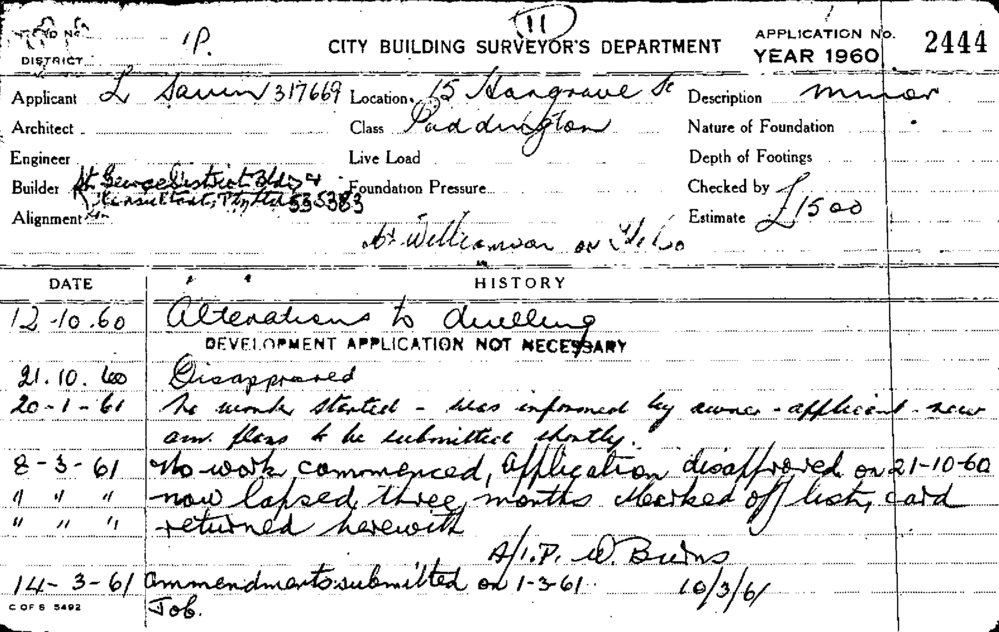 11
1P.
CITY BUILDING SURVEYOR'S DEPARTMENT
APPLICATION No. 2444
YEAR 1960
DISTRICT
Applicant L 317669 Location. 15 Hargrave St Description minor
Architect Class Paddington Nature of Foundation
Engineer Live Load Depth of Footings
Builder St. George District Bldg & Foundation Pressure Checked by
Consultants, Pty Ltd 535383
Alignment Estimate £1500
on
DATE HISTORY
12-10.60 Alterations to dwelling
DEVELOPMENT APPLICATION NOT NECESSARY
21.10.60 Disapproved
20-1-61 No works started - was informed by owner - applicant - new
am. plans to be submitted shortly.
8-3-61 No work commenced, application disapproved on 21-10-60
" " " now lapsed three months. Marked off list, card
" " " returned herewith
A/I.P. W. Burns
14-3-61 Ammendments submitted on 1-3-61. 10/3/61
C OF S 5492
Job.